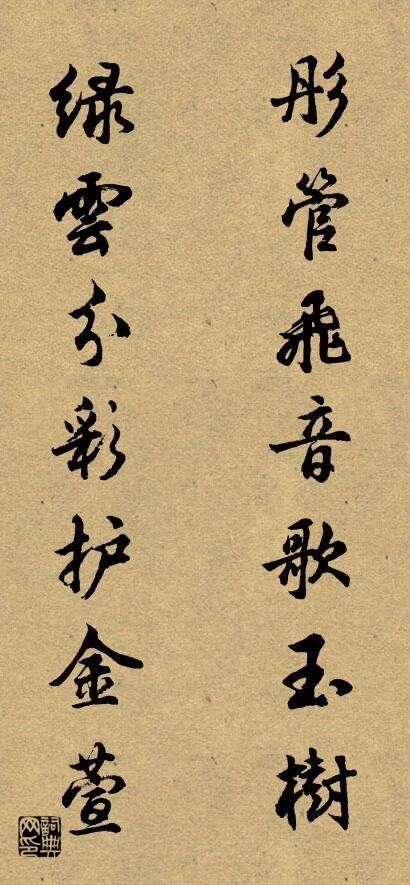 彤管飛音歌玉樹
绿雲分彩护金萱
詞典网印